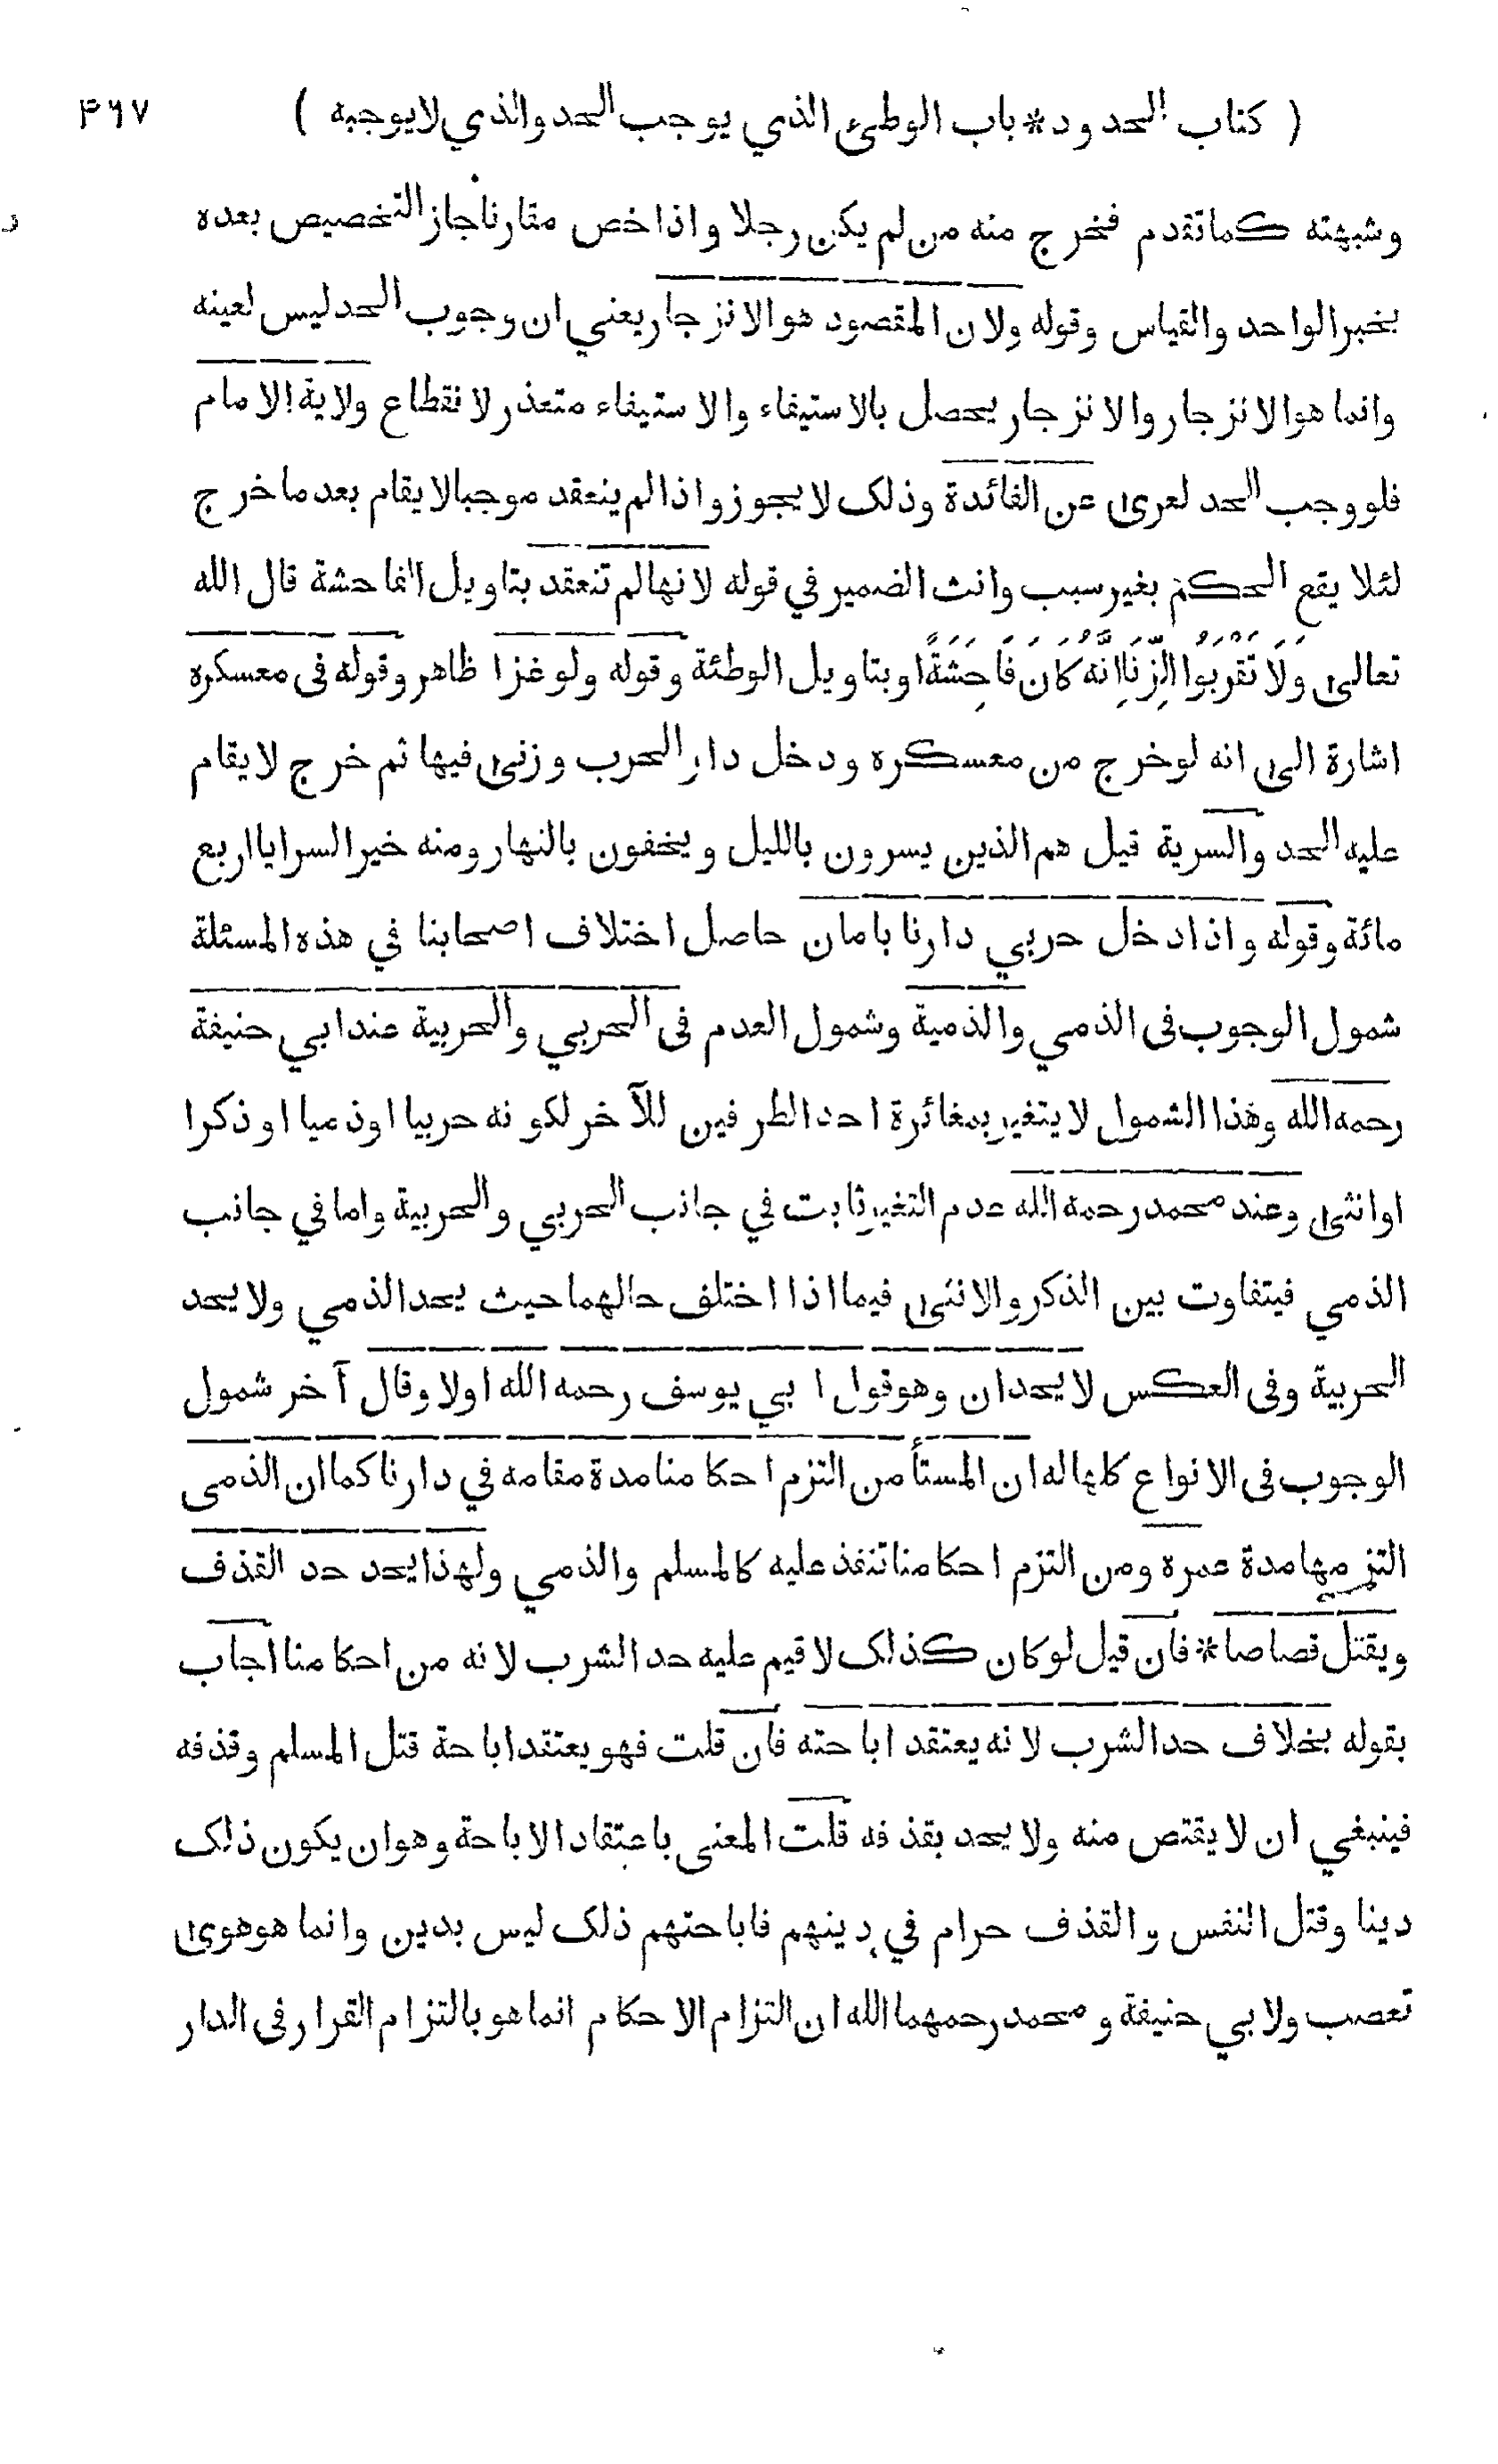 ( كتاب الحدود * باب الوطئ الذي يوجب الحد والذي لا يوجبه ) ۴۶۷
وشبهته كما تقدم فخرج منه من لم يكن رجلا واذا خص مقارنا جاز التخصيص بعده
بخبر الواحد والقياس وقوله ولان المقصود هو الانزجار يعني ان وجوب الحد ليس لعينه
وانما هو الانزجار والانزجار يحصل بالاستيفاء والاستيفاء متعذر لانقطاع ولاية الامام
فلو وجب الحد لعرى عن الفائدة وذلك لا يجوز واذا لم ينعقد موجبا لا يقام بعد ما خرج
لئلا يقع الحكم بغير سبب وانث الضمير في قوله لانها لم تنعقد بتاويل الفاحشة قال الله
تعالى وَلَا تَقْرَبُوا الزِّنَا إِنَّهُ كَانَ فَاحِشَةً او بتاويل الوطئة وقوله ولو غزا ظاهر وقوله في معسكره
اشارة الى انه لو خرج من معسكره ودخل دار الحرب وزنى فيها ثم خرج لا يقام
عليه الحد والسرية قيل هم الذين يسرون بالليل ويخفون بالنهار ومنه خير السرايا اربع
مائة وقوله واذا دخل حربي دارنا بامان حاصل اختلاف اصحابنا في هذه المسئلة
شمول الوجوب في الذمي والذمية وشمول العدم في الحربي والحربية عند ابي حنيفة
رحمه الله وهذا الشمول لا يتغير بمغائرة احد الطرفين للآخر لكونه حربيا او ذميا او ذكرا
او انثى وعند محمد رحمه الله عدم التغير ثابت في جانب الحربي والحربية واما في جانب
الذمي فيتفاوت بين الذكر والانثى فيما اذا اختلف حالهما حيث يحد الذمي ولا يحد
الحربية وفي العكس لا يحدان وهو قول ابي يوسف رحمه الله اولا وقال آخر شمول
الوجوب في الانواع كلها له ان المستأمن التزم احكامنا مدة مقامه في دارنا كما ان الذمى
التزمها مدة عمره ومن التزم احكامنا تنفذ عليه كالمسلم والذمي ولهذا يحد حد القذف
ويقتل قصاصا * فان قيل لو كان كذلك لاقيم عليه حد الشرب لانه من احكامنا اجاب
بقوله بخلاف حد الشرب لانه يعتقد اباحته فان قلت فهو يعتقد اباحة قتل المسلم وقذفه
فينبغي ان لا يقتص منه ولا يحد بقذفه قلت المعنى باعتقاد الاباحة وهو ان يكون ذلك
دينا وقتل النفس والقذف حرام في دينهم فاباحتهم ذلك ليس بدين وانما هو هوى
تعصب ولابي حنيفة و محمد رحمهما الله ان التزام الاحكام انما هو بالتزام القرار في الدار